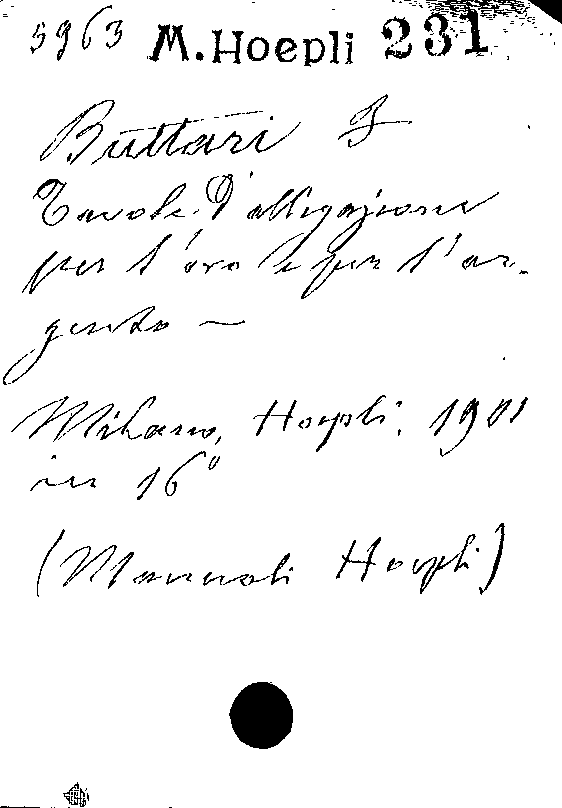 5963 M. Hoepli 231
Buttari F
Tavole d'alligazione
per l'oro e per l'ar-
gento —
Milano, Hoepli, 1901
in 16°
(Manuali Hoepli)